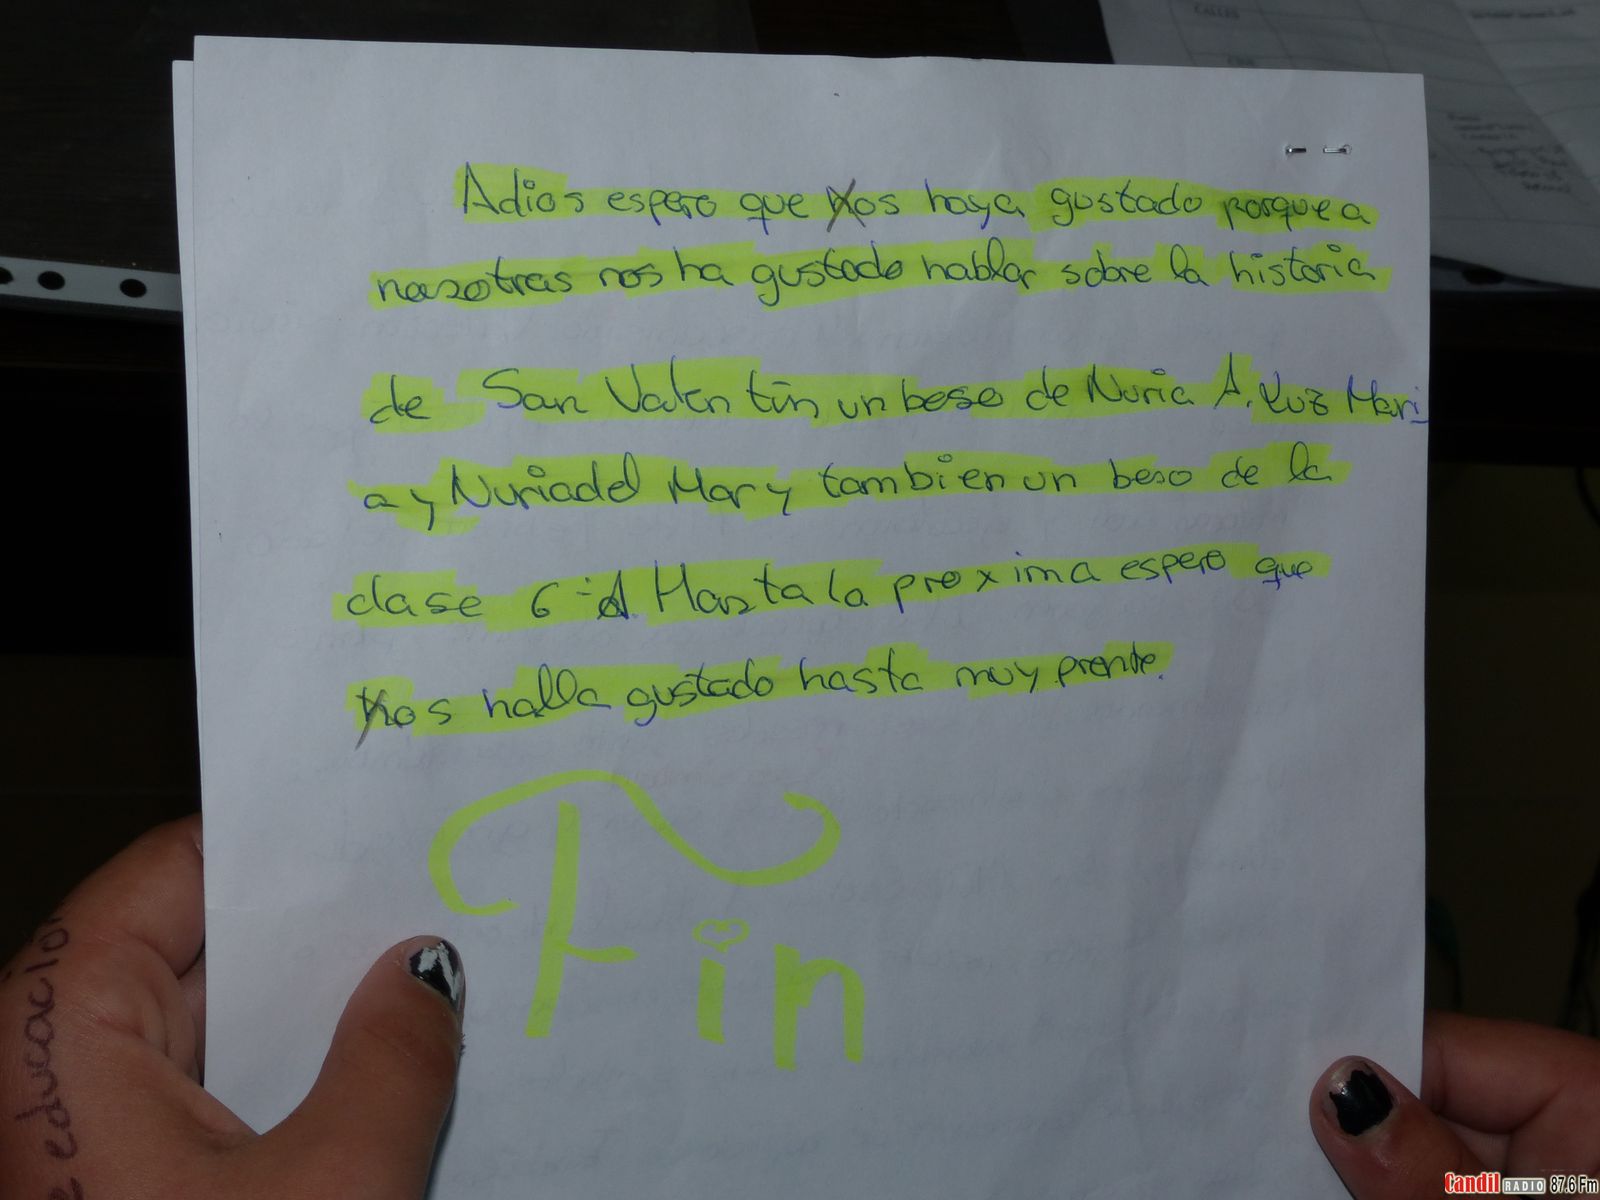 Adios espero que os haya gustado porque a
nosotras nos ha gustado hablar sobre la historia
de San Valentin, un beso de Nuria A, Luz Mari
a y Nuria del Mar y tambien un beso de la
clase 6-A Hasta la proxima espero que
os halla gustado hasta muy prente.
Fin
educación
Candil RADIO 87.6 Fm